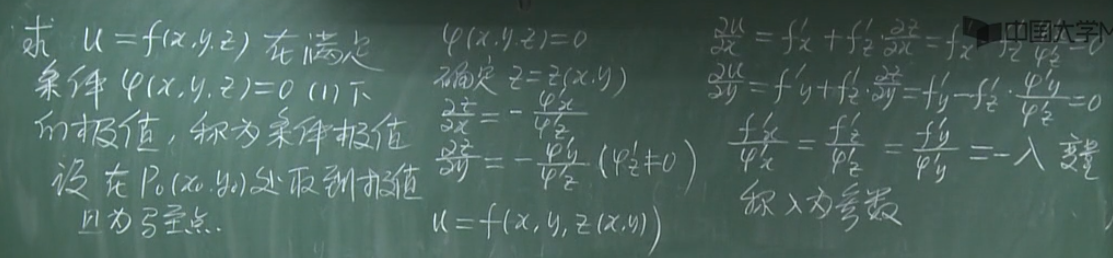 求 u = f(x,y,z) 在满足
条件 φ(x,y,z)=0 (1) 下
的极值，称为条件极值
设在 P₀(x₀,y₀) 处取到极值
且为驻点.
φ(x,y,z)=0
确定 z=z(x,y)
∂z/∂x = - φ'x/φ'z
∂z/∂y = - φ'y/φ'z (φ'z≠0)
u=f(x,y,z(x,y))
∂u/∂x = f'x + f'z·∂z/∂x = f'x f'z φ'z =0
∂u/∂y = f'y + f'z·∂z/∂y = f'y - f'z·φ'y/φ'z = 0
f'x/φ'x = f'z/φ'z = f'y/φ'y = -λ 变量
称λ为参数
中国大学M